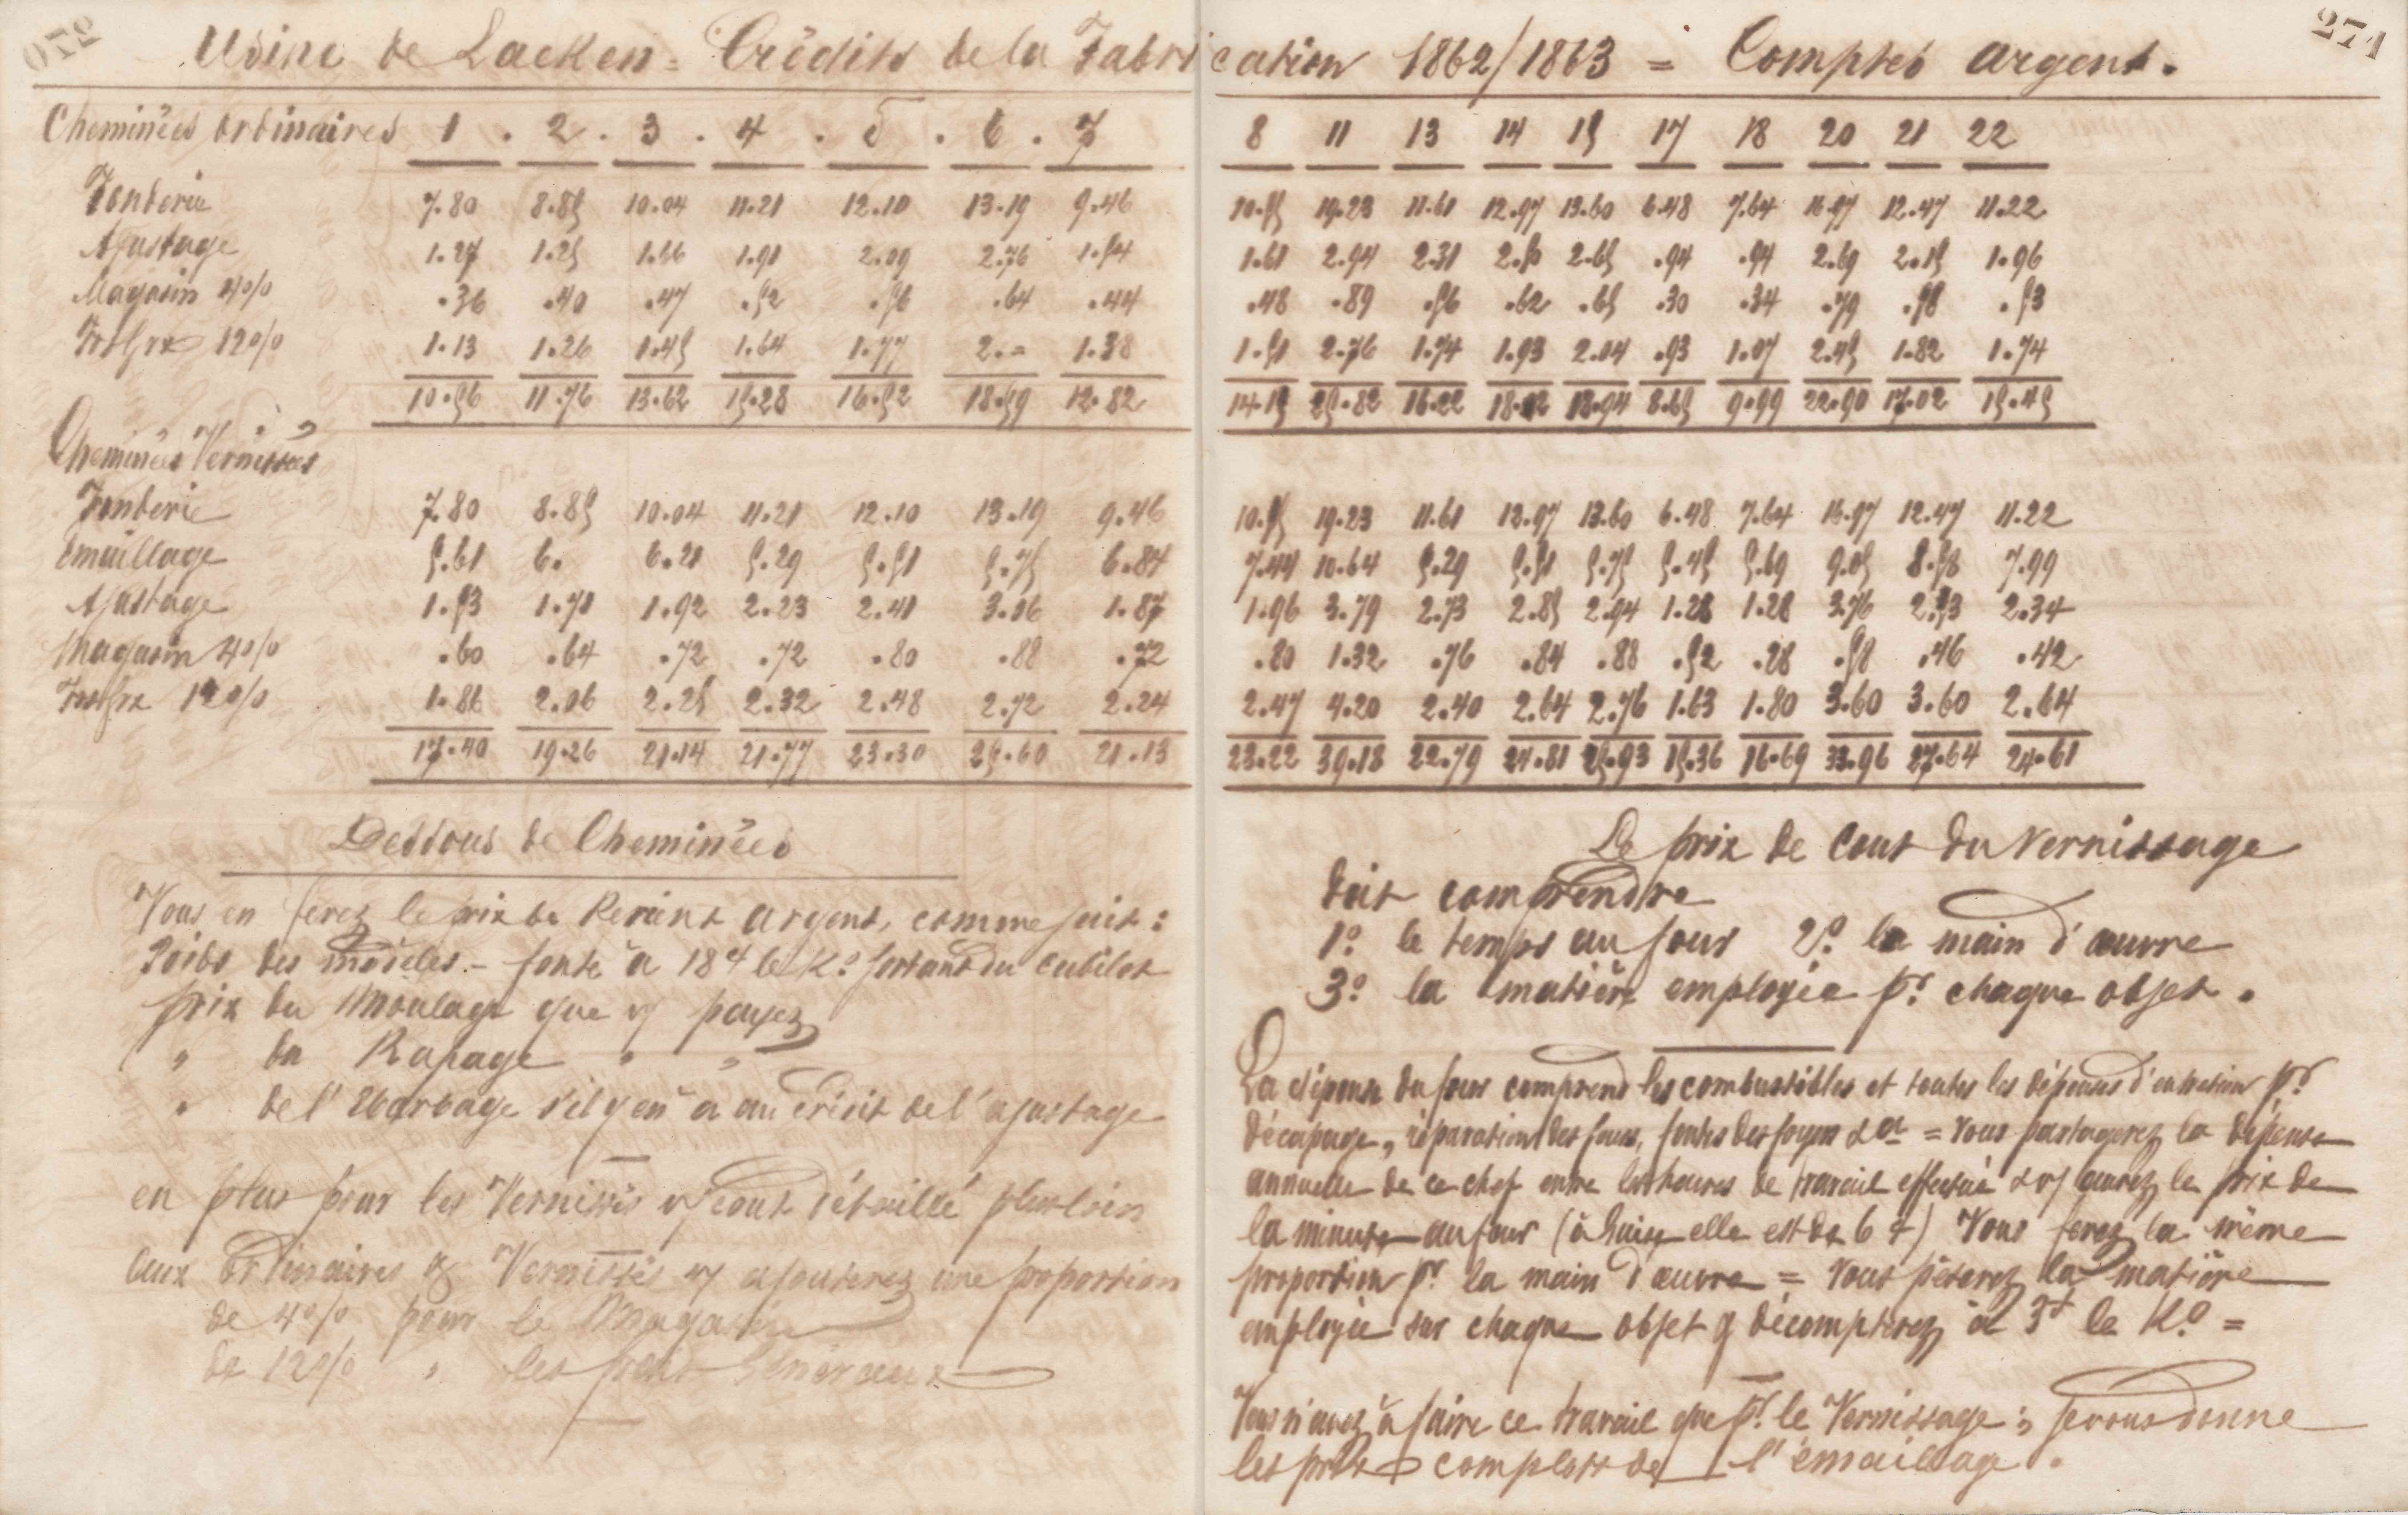 270
271
Usine de Laeken = Crédits de la Fabrication 1862/1863 = Comptes argent.
Cheminées Ordinaires 1 . 2 . 3 . 4 . 5 . 6 . 7 8 11 13 14 15 17 18 20 21 22
Fonderie 7.80 8.85 10.04 11.21 12.10 13.19 9.46 10.55 19.23 11.61 12.97 13.60 6.48 7.64 16.97 12.47 11.22
Ajustage 1.27 1.25 1.66 1.91 2.09 2.76 1.54 1.61 2.94 2.31 2.50 2.65 .94 .94 2.69 2.15 1.96
Magasin 4% .36 .40 .47 .52 .56 .64 .44 .48 .89 .56 .62 .65 .30 .34 .79 .58 .53
12% 1.13 1.26 1.45 1.64 1.77 2.= 1.38 1.51 2.76 1.74 1.93 2.04 .93 1.07 2.45 1.82 1.74
10.56 11.76 13.62 15.28 16.52 18.59 12.82 14.15 25.82 16.22 18.02 18.94 8.65 9.99 22.90 17.02 15.45
Cheminées Vernissées
Fonderie 7.80 8.85 10.04 11.21 12.10 13.19 9.46 10.55 19.23 11.61 12.97 13.60 6.48 7.64 16.97 12.47 11.22
Emaillage 5.61 6. 6.21 5.29 5.51 5.75 6.84 7.44 10.64 5.29 5.51 5.75 5.45 5.69 9.05 8.58 7.99
Ajustage 1.53 1.71 1.92 2.23 2.41 3.06 1.87 1.96 3.79 2.73 2.85 2.94 1.28 1.28 3.76 2.53 2.34
Magasin 4% .60 .64 .72 .72 .80 .88 .72 .80 1.32 .76 .84 .88 .52 .28 .58 .46 .42
12% 1.86 2.06 2.25 2.32 2.48 2.72 2.24 2.47 4.20 2.40 2.64 2.76 1.63 1.80 3.60 3.60 2.64
17.40 19.26 21.14 21.77 23.30 25.60 21.13 23.22 39.18 22.79 24.81 25.93 15.36 16.69 33.96 27.64 24.61
Dessous de Cheminées
Vous en ferez le prix de Revient argent, comme suit :
Poids des modèles. - fonte à 18 le K.o sortant du cubilot
prix du Moulage que vs payez
" du Rapage " "
" de l'Ebarbage s'il y en a au crédit de l'ajustage
en plus pour les Vernissés vs cout détaillé plus loin
aux Ordinaires & Vernissés vs ajouterez une proportion
de 4% pour le Magasin
de 12% " les frais Généraux
Le prix de Cout du Vernissage
doit comprendre
1.o le temps au four 2.o la main d'œuvre
3.o la matière employée pr. chaque objet .
La dépense du four comprend les combustibles et toutes les dépenses d'entretien pr.
décapage, réparation des fours, fontes des foyers &a = Vous partagerez la dépense
annuelle de ce chef entre les heures de travail effectué & vs aurez le prix de
la minute au four (à Guise elle est de 6 ) Vous ferez la même
proportion pr. la main d'œuvre = Vous pèserez la matière
employée sur chaque objet & décompterez à 3f le K.o =
Vous n'avez à faire ce travail que pr. le Vernissage ; je vous donne
les prix complets de l'émaillage .